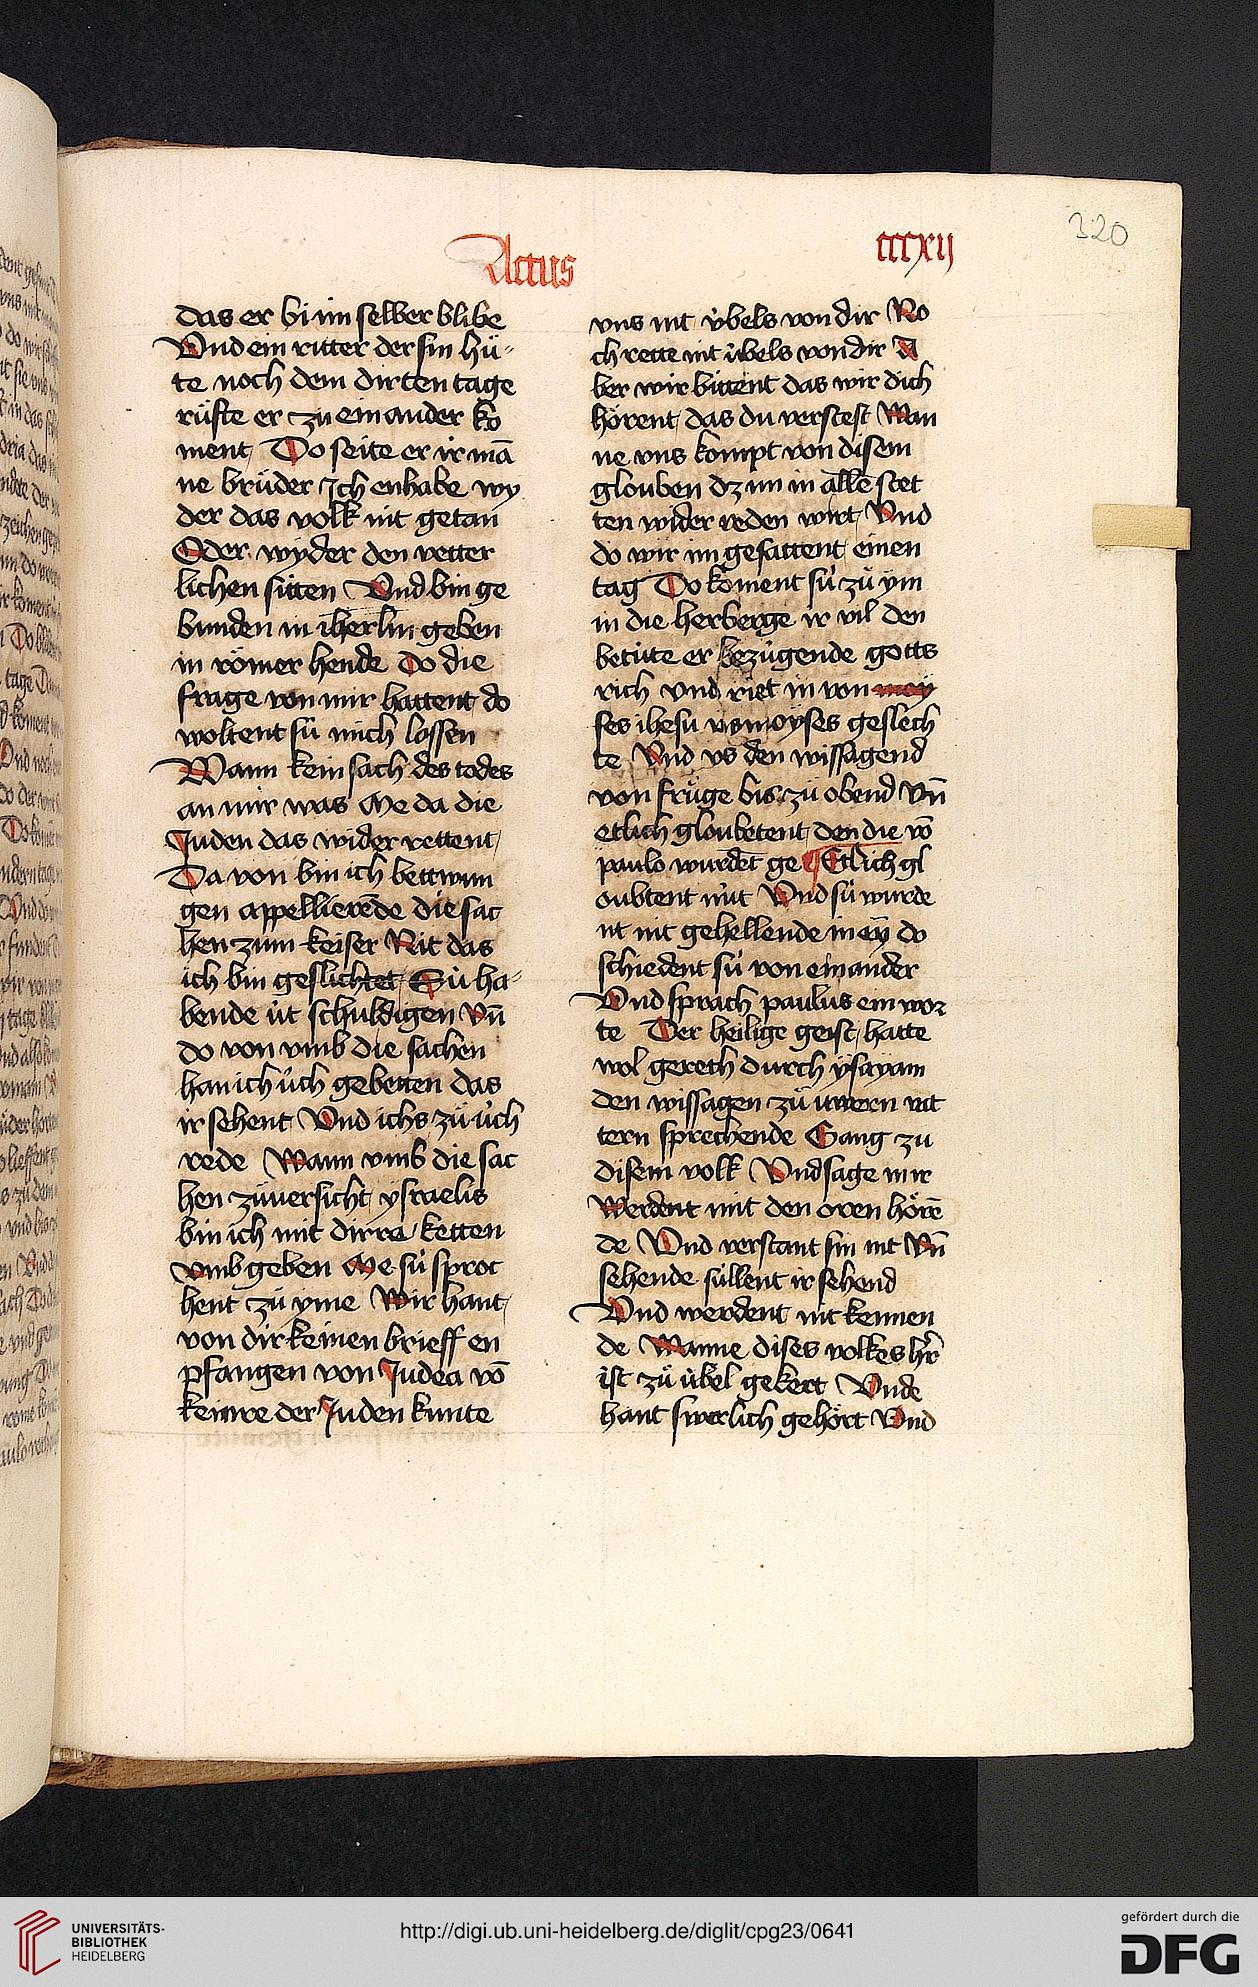 320
Actus
cccxij
das er bi im selber blibe
Vnd ein ritter der sin hü-
te noch dem dirten tage
rüfte er zu einander ko
ment Do seite er ir mā
ne brüder Ich enhabe wy
der das volk nit getan
Oder wyder den vetter
lichen sitten Vnd bin ge
bunden in iherlm geben
in römer hende Do die
frage von mir hattent do
woltent sú mich lossen
Wann kein sach des todes
an mir was Me da die
Juden das wider rettent
Da von bin ich bettwun
gen appellierēde die sac
hen zum keiser Nit das
ich bin geslichtet Sú ha-
bende út schuldigen vn̄
do von vmb die sachen
han ich úch gebetten das
ir sehent Vnd ichs zü úch
rede Wann vmb die sac
hen züuersicht ysraelis
bin ich mit dirra ketten
vmb geben Me sú sproc
hent zü yme Wir hant
von dir keinen brieff en
pfangen von Judea vō
keinre der Juden kunte
vns nit v́bels von dir No
ch rette nit úbels von dir A
ber wir bittent das wir dich
hörent das du verstest Wan
ne vns kompt von disem
glouben dz im in alle stet
ten wider reden wirt Vnd
do wir im gesattent einen
tag Do koment sú zü ym
in die herberge ir vil den
betúte er bezúgende gotts
rich vnd riet in von moy
ses ihesu vs moyses geslech
te Vnd vs den wissagend
von früge bis zü obend vn̄
etlich gloubetent den die vō
paulo wurdēt ge Etlich gl
oubtent nút Vnd sú wurde
nt nit gehellende in ey do
schiedent sú von einander
Vnd sprach paulus ein wor
te Der heilige geist hatte
wol gereth durch ysayam
den wissagen zü uwern vat
tern sprechende Gang zu
disem volk Vnd sage in ir
werdent mit den oren hörē
de Vnd verstant sin nit Vn̄
sehende súllent ir sehend
Vnd werdent nit kennen
de Wanne dises volkes hr̄
ist zü úbel gekert Vnde
hant swerlich gehört Vnd
UNIVERSITÄTS-
BIBLIOTHEK
HEIDELBERG
http://digi.ub.uni-heidelberg.de/diglit/cpg23/0641
gefördert durch die
DFG